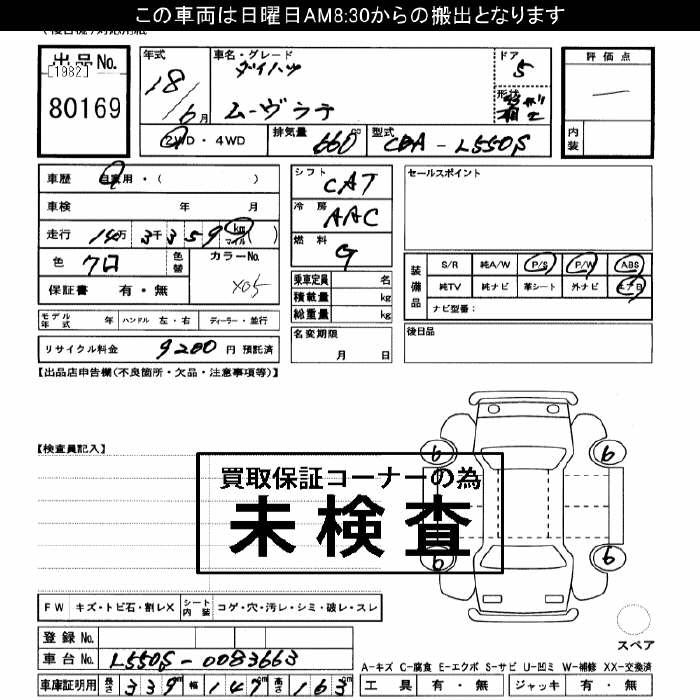 この車両は日曜日AM8:30からの搬出となります
出品No.
[1982]
80169
年式
18/6月
車名・グレード
ダイハツ
ムーヴラテ
ドア
5
形状
評価点
内装
2WD・4WD
排気量
660cc
型式
CBA-L550S
車歴 自家用・( )
車検 年 月
走行 14万3千359 km マイル ( )
色 クロ
色替
カラーNo.
X05
保証書 有・無
モデル年式 年
ハンドル 左・右
ディーラー・並行
リサイクル料金 9200円 預託済
シフト
CAT
冷房
AAC
燃料
G
乗車定員 名
積載量 kg
総重量 kg
名変期限
月 日
セールスポイント
装備品
S/R 純A/W P/S P/W ABS
純TV 純ナビ 革シート 外ナビ エアB
ナビ型番:
後日品
【出品店申告欄(不良箇所・欠品・注意事項等)】
【検査員記入】
買取保証コーナーの為
未検査
6
6
6
6
スペア
FW キズ・トビ石・割レX
シート内装 コゲ・穴・汚レ・シミ・破レ・スレ
登録No.
車台No. L550S-0083663
車庫証明用 長さ 339cm 幅 147cm 高さ 163cm
A-キズ C-腐食 E-エクボ S-サビ U-凹ミ W-補修 XX-交換済
工具 有・無
ジャッキ 有・無